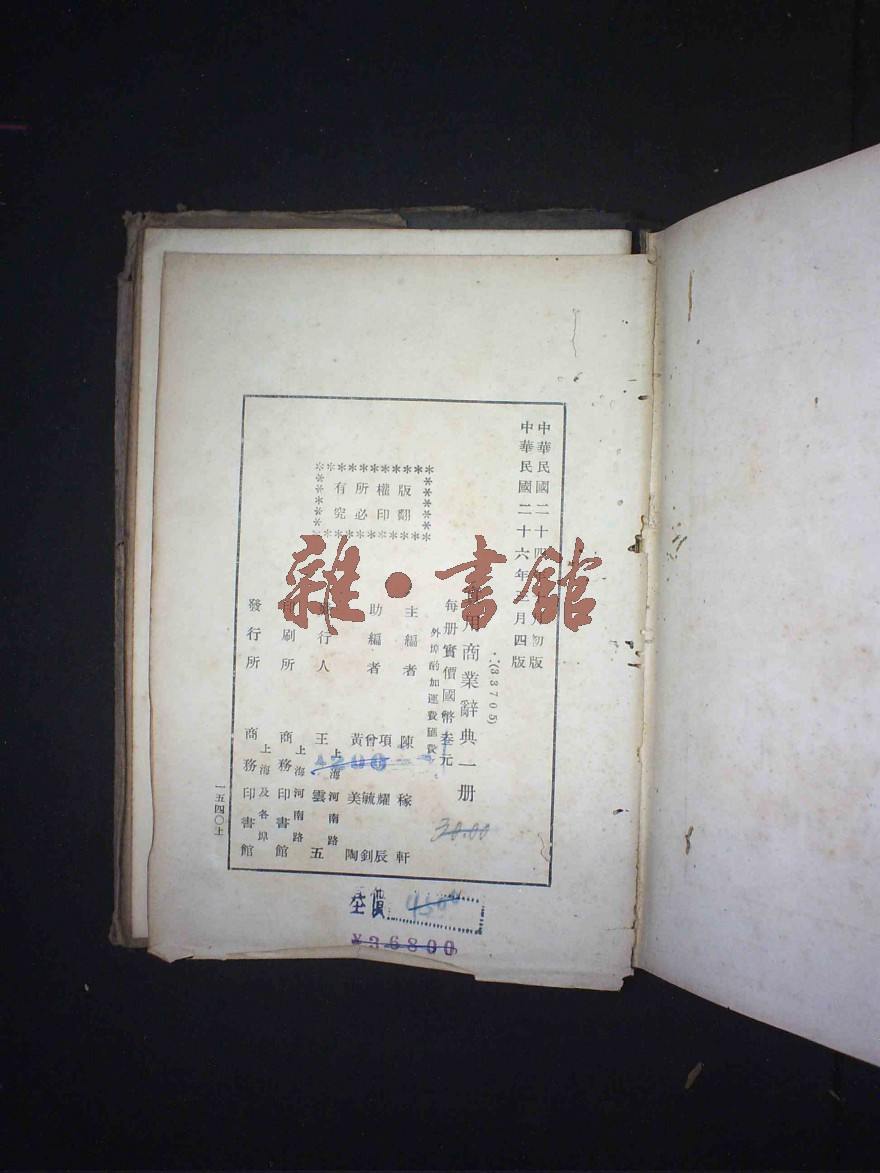 中華民國二十四年 月初版
中華民國二十六年 月四版
(33705)
用商業辭典一册
每册實價國幣叁元
外埠酌加運費匯費
版權所有
翻印必究
主編者 陳稼軒
助編者 項耀辰
曾毓釗
黃美陶
行人 王雲五
上海河南路
印刷所 商務印書館
上海河南路
發行所 商務印書館
上海及各埠
一五四〇上
30.00
¥36800
雜·書館